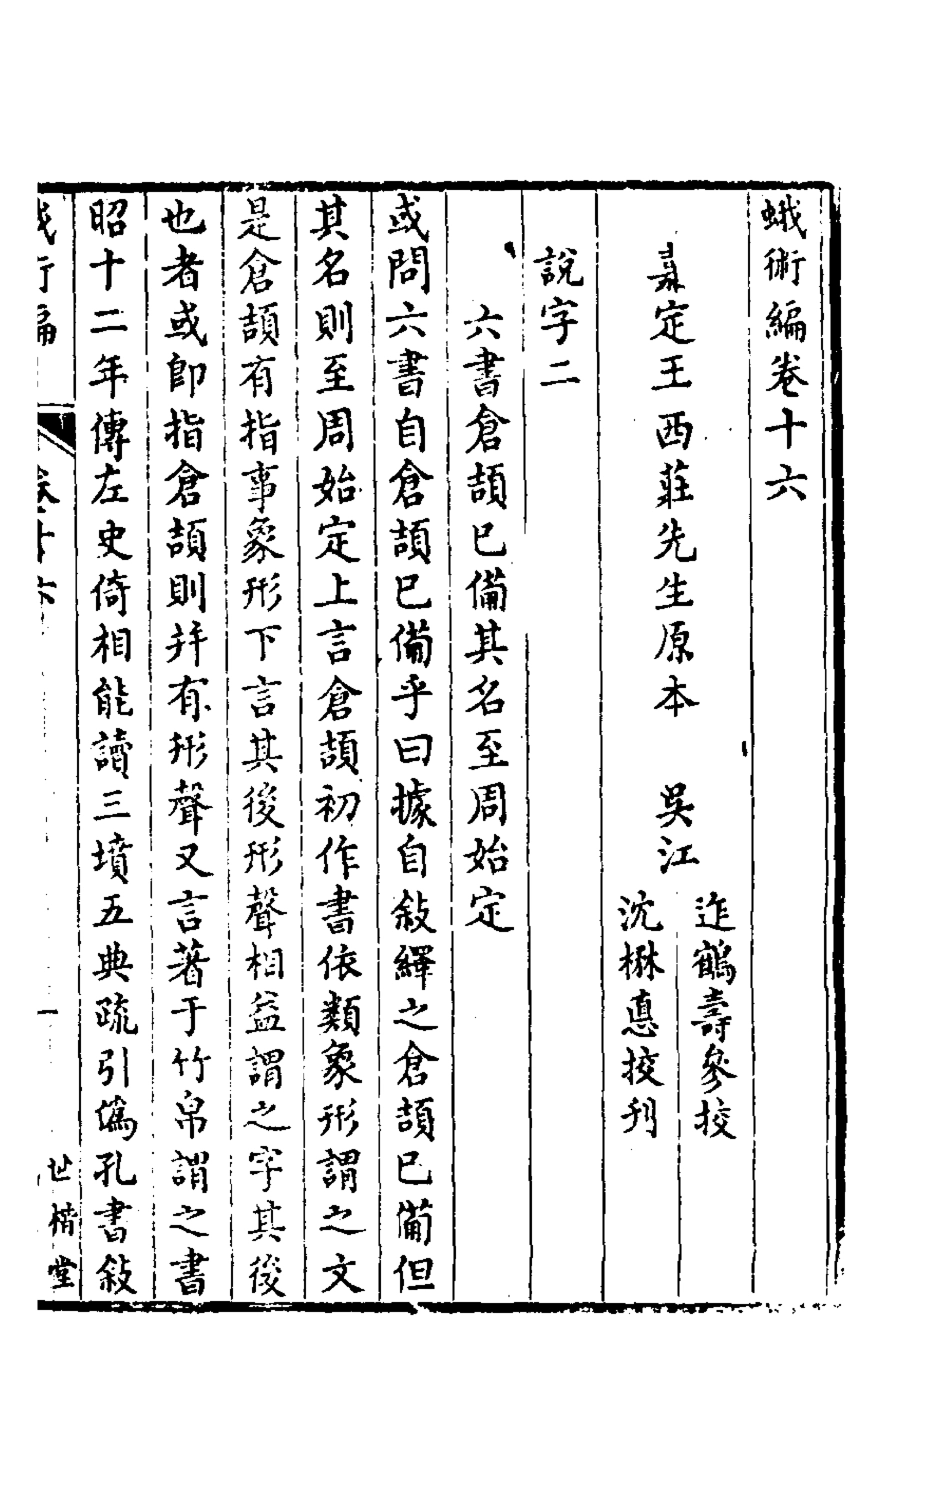 蛾術編卷十六
嘉定王西莊先生原本　吳江
迮鶴壽參挍
沈楙悳挍刊
說字二
六書倉頡已備其名至周始定
或問六書自倉頡已備乎曰據自敍繹之倉頡已備但
其名則至周始定上言倉頡初作書依類象形謂之文
是倉頡有指事象形下言其後形聲相益謂之字其後
也者或卽指倉頡則幷有形聲又言著于竹帛謂之書
昭十二年傳左史倚相能讀三墳五典疏引僞孔書敍
蛾術編　卷十六　一　世楷堂